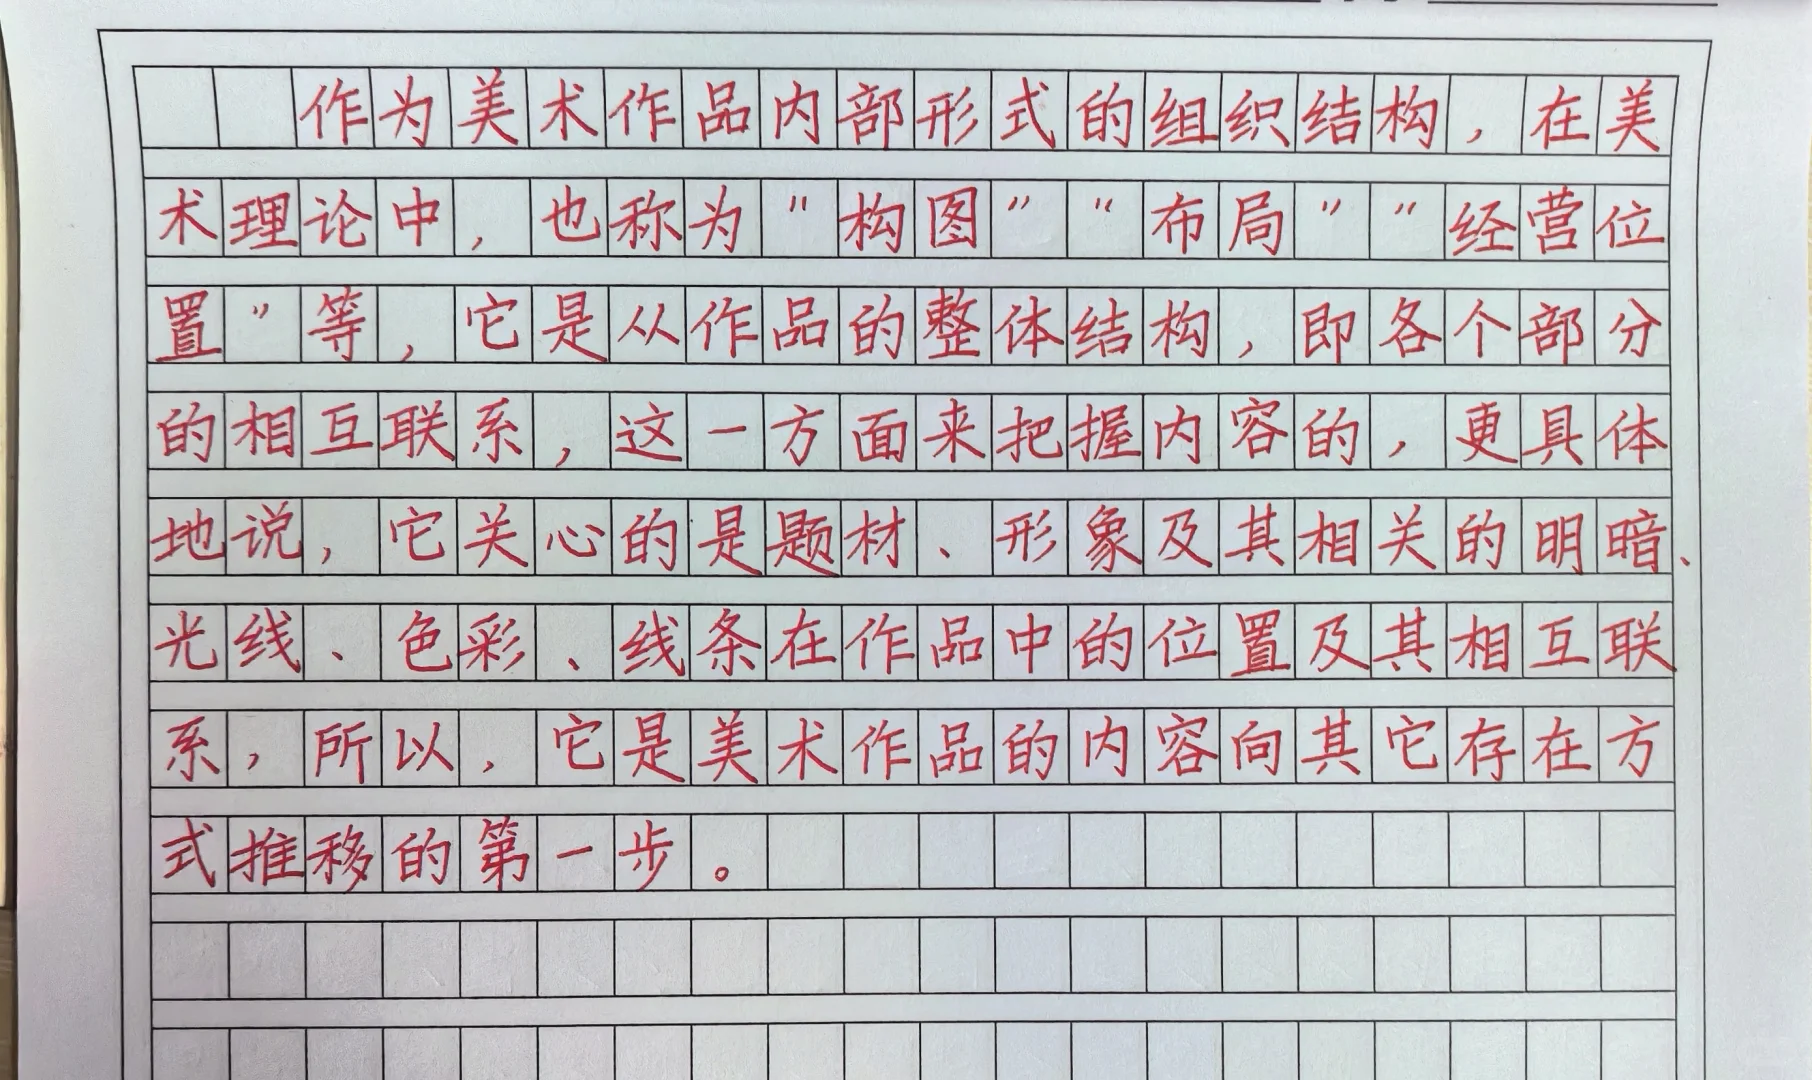 作为美术作品内部形式的组织结构，在美
术理论中，也称为“构图”“布局”“经营位
置”等，它是从作品的整体结构，即各个部分
的相互联系，这一方面来把握内容的，更具体
地说，它关心的是题材、形象及其相关的明暗、
光线、色彩、线条在作品中的位置及其相互联
系，所以，它是美术作品的内容向其它存在方
式推移的第一步。